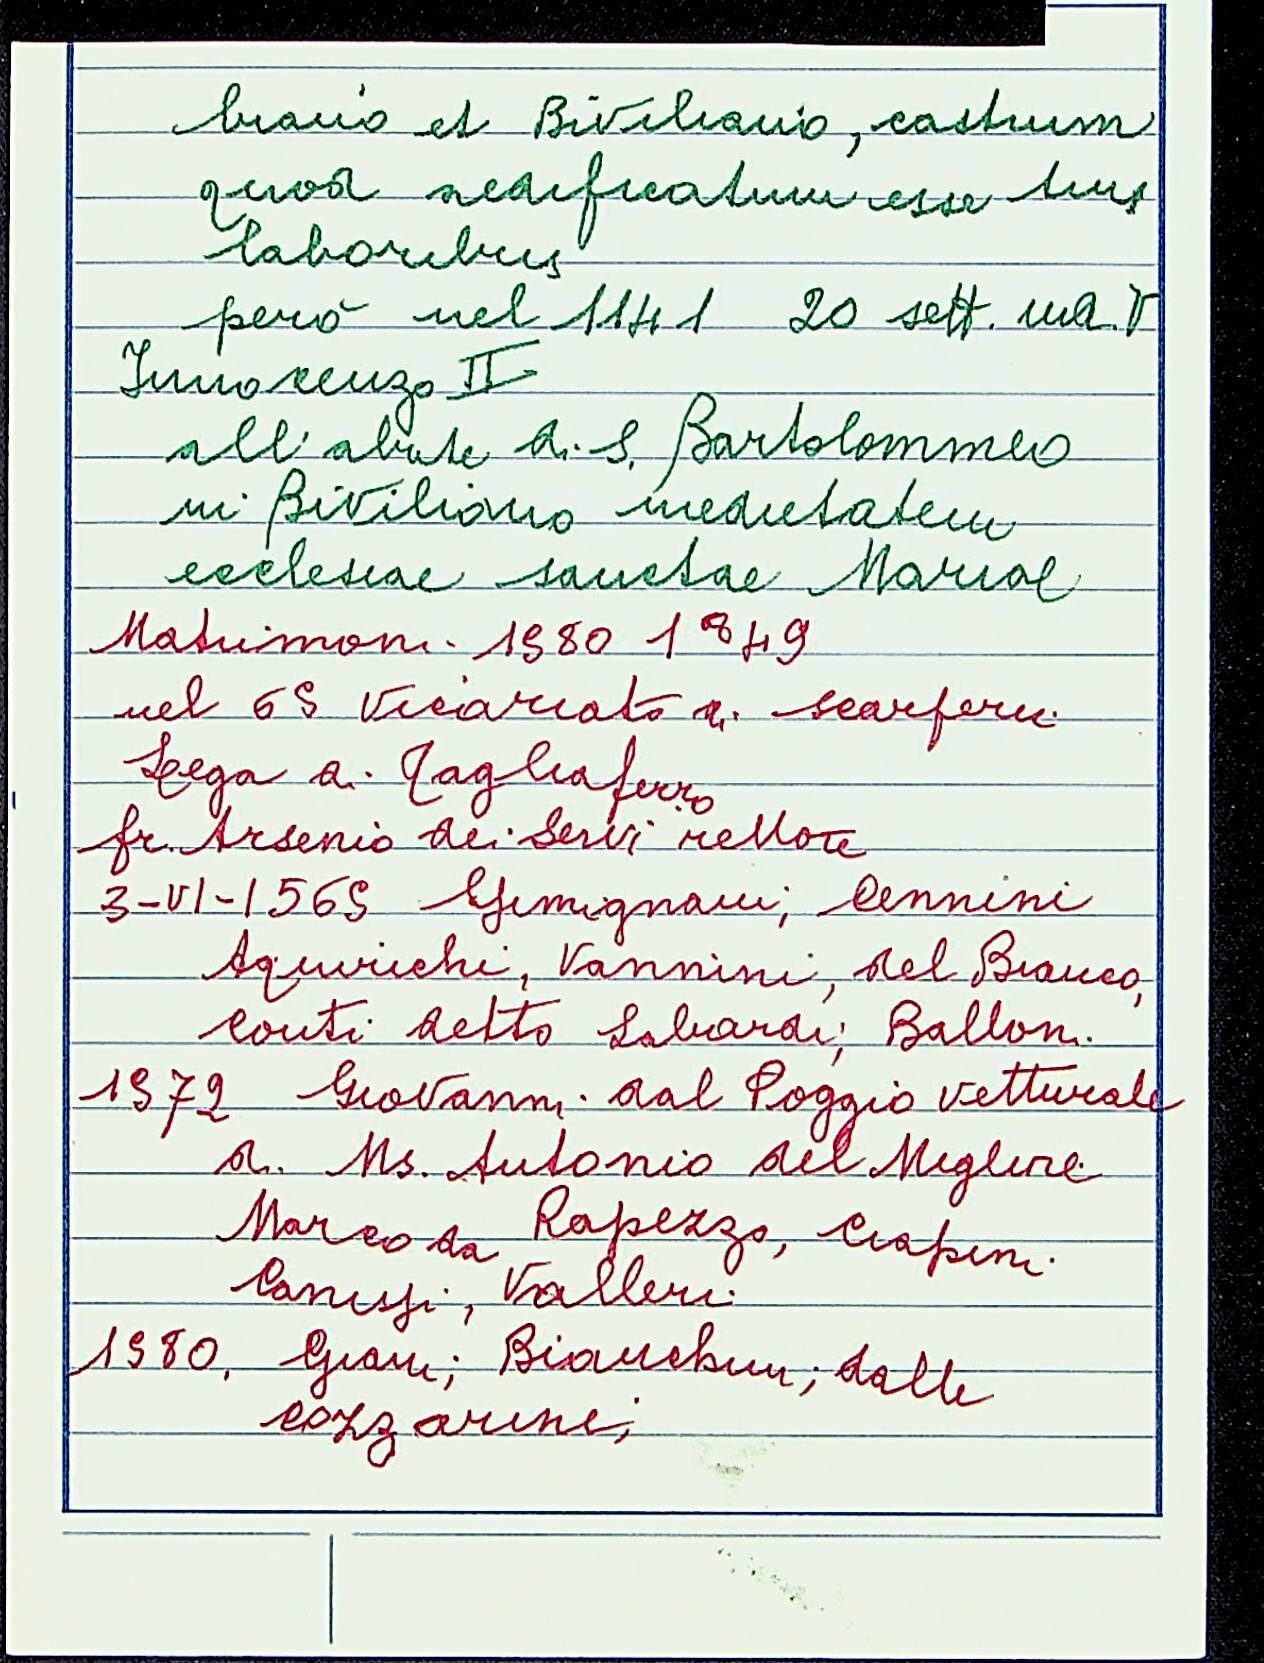 braио et Biviliano, castrum
quod aedificatum esse tuis
laboribus
però nel 1141 20 sett. ind. V
Innocenzo II
all'abate di S. Bartolommeo
in Biviliano medietatem
ecclesiae sanctae Mariae
Matrimoni. 1580 1849
nel 69 Vicariato di Scarperi.
Lega di Tagliaferro
fr. Arsenio dei Servi rettore
3-VI-1569 Gimignani; Cennini
Vannini, del Bianco,
Conti detto ; Balloni.
1572 Giovanni dal Poggio vetturale
di Ms. Antonio del Migliore
Marco da Rapezzo, Ciapini
Valleri.
1580. Giani; Bianchini; dalle
cozzarine;